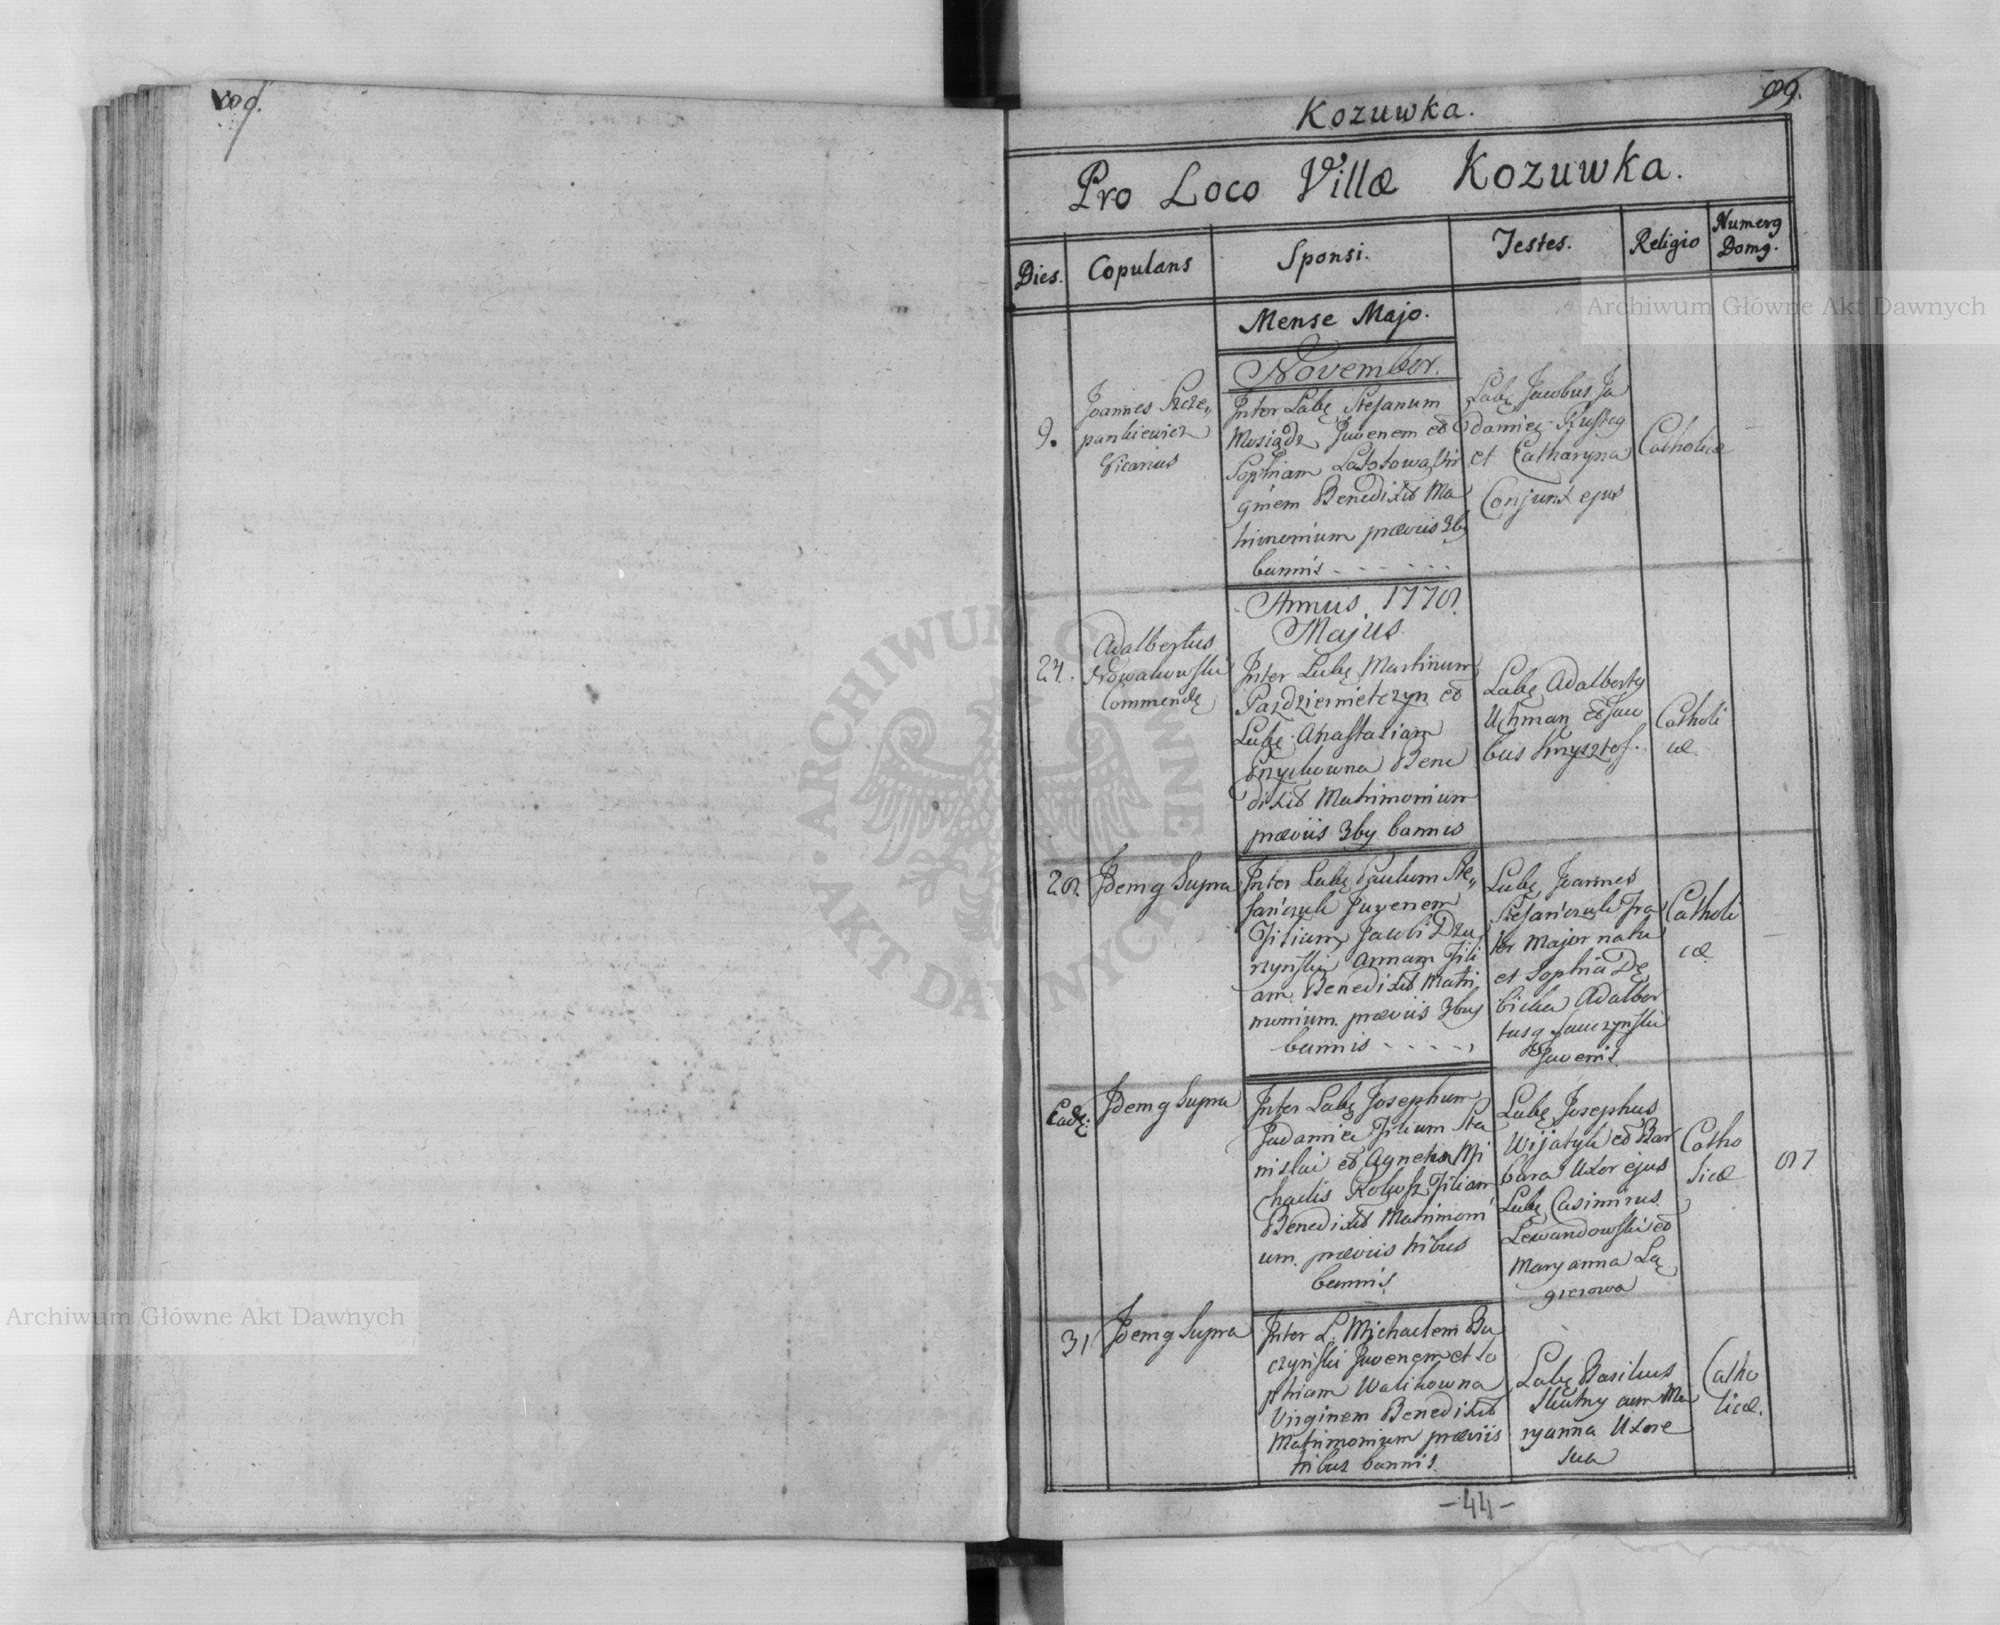 Kozuwka.
89.
Pro Loco Villæ Kozuwka.
Dies.
Copulans
Sponsi.
Testes.
Religio
Numerq
Domq.
Mense Majo.
November.
9.
Joannes Szcze„
pankiewicz
Vicarius
Inter Labę Stefanum
Mosiądz Juvenem et
Sophiam
ginem Benedixit Ma
trimonium præviis 3bq
bannis - - - - - -
Labę Jacobus Ja
damiec
et Catharyna
Conjunx ejus
Catholicæ
Annus 1778.
Majus.
24.
Adalbertus
Nowakowski
Commendę
Inter Labę Martinum
et
Labę Anastasiam
Bene
dixit Matrimonium
præviis 3bq bannis
Labę Adalbertq
Uchman et Jaco
bus Krzysztof.
Catholi
cæ.
28.
Idemq Supra
Inter Labę Paulum Ste„
fańczuk Juvenem
Filium Jacobi Dzu
rzyński Annam Fili
am Benedixit Matri
monium præviis 3bus
bannis - - - -
Labę Joannes
Stefańczuk Fra
ter Major natu
et Sophia Dę
bicka Adalber
tusq
Juvenis.
Catholi
cæ
Eadę:
Idemq Supra
Inter Labę Josephum
Jadamiec Filium Sta
nislai et Agnetem Mi
chaelis Filiam
Benedixit Matrimoni
um præviis tribus
bannis.
Labę Josephus
Wijatyk et Bar
bara Uxor ejus
Labę Casimirus
Lewandowski et
Maryanna
Catho
licæ
87
31
Idemq Supra
Inter L. Michaelem Bu
czyński Juvenem et So
phiam Walikowna
Virginem Benedixit
Matrimonium præviis
tribus bannis.
Labę Basilius
Skutny cum Ma
ryanna Uxore
sua
Catho
licæ.
-44-
Archiwum Główne Akt Dawnych
Archiwum Główne Akt Dawnych
ARCHIWUM GŁÓWNE
AKT DAWNYCH